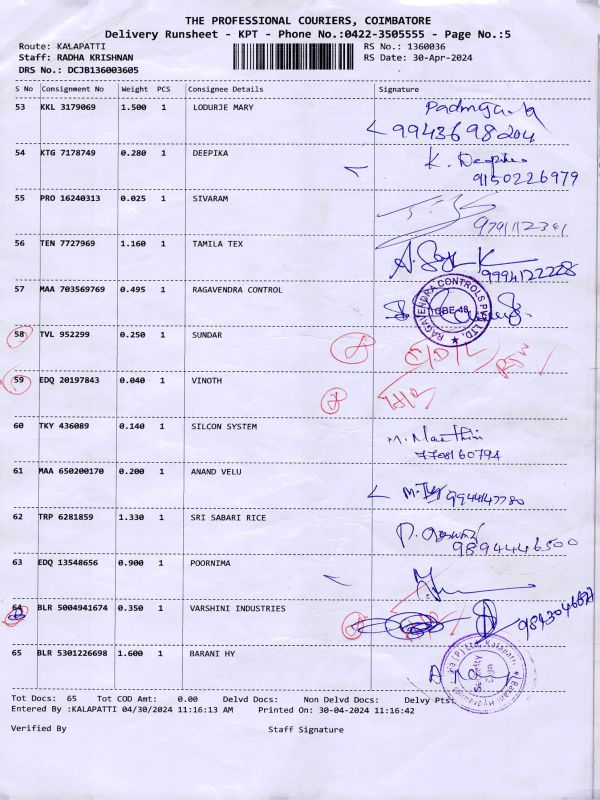 THE PROFESSIONAL COURIERS, COIMBATORE
Delivery Runsheet - KPT - Phone No.:0422-3505555 - Page No.:5
Route: KALAPATTI RS No.: 1360036
Staff: RADHA KRISHNAN RS Date: 30-Apr-2024
DRS No.: DCJB136003605
S No Consignment No Weight PCS Consignee Details Signature
53 KKL 3179069 1.500 1 LODURJE MARY
9943698204
54 KTG 7178749 0.280 1 DEEPIKA K. Deepika
9150226979
55 PRO 16240313 0.025 1 SIVARAM
56 TEN 7727969 1.160 1 TAMILA TEX
9994122228
57 MAA 703569769 0.495 1 RAGAVENDRA CONTROL
RAGAVENDRA CONTROLS PVT. LTD.
58 TVL 952299 0.250 1 SUNDAR
59 EDQ 20197843 0.040 1 VINOTH
60 TKY 436089 0.140 1 SILCON SYSTEM
7708160794
61 MAA 650200170 0.200 1 ANAND VELU
9944147780
62 TRP 6281859 1.330 1 SRI SABARI RICE
9894446500
63 EDQ 13548656 0.900 1 POORNIMA
64 BLR 5004941674 0.350 1 VARSHINI INDUSTRIES
65 BLR 5301226698 1.600 1 BARANI HY
Tot Docs: 65 Tot COD Amt: 0.00 Delvd Docs: Non Delvd Docs: Delvy Pts:
Entered By :KALAPATTI 04/30/2024 11:16:13 AM Printed On: 30-04-2024 11:16:42
Verified By Staff Signature